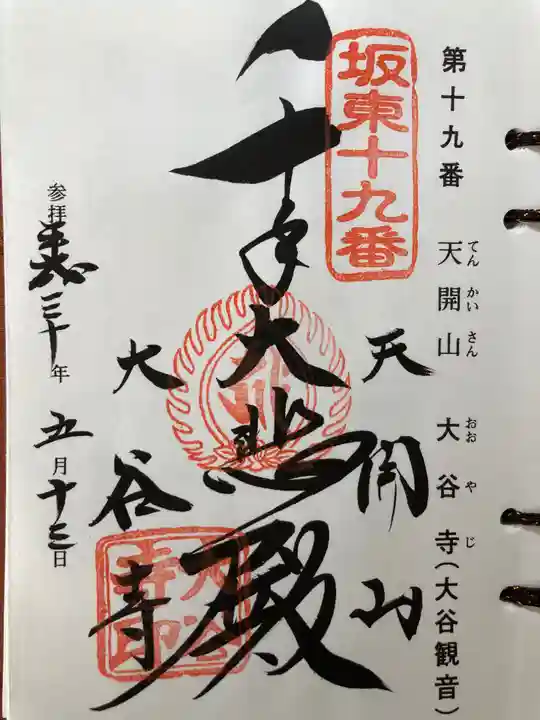 第十九番 天開山 大谷寺(大谷観音)
てんかいさん おおやじ
坂東十九番
天開山
千手大悲殿
大谷寺
大谷寺印
参拝 平成三十年 五月十三日